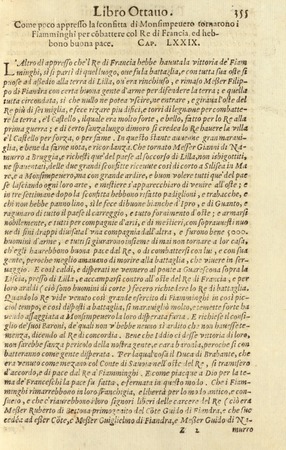 Libro Ottauo. 355
Come poco appresso la sconfitta di Monsimpeuero tornarono i
Fiamminghi per cõbattere col Re di Francia, ed heb-
bono buona pace. CAP. LXXIX.
L'Altro dì appresso che'l Re di Francia hebbe hauuta vittoria de' Fiam
minghi, si partì di quel luogo, oue fu la battaglia, e con tutta sua oste si
puose ad assedio alla terra di Lilla, ou'era rinchiuso, e rimaso Messer Filip-
po di Fiandra con certa buona gente d'arme per difendere la terra; e quella
tutta circondata, sì che nullo ne potea vscire, ne entrare, e
fece rizare più difici, e torri di legname per combatte-
re la terra, e'l Castello, il quale era molto forte, e bello, fatto per lo Re alla
prima guerra; e di certo lungo dimoro si credea lo Re hauere la villa
e'l Castello per forza, o per fame. In questo stante auuenne gran maraui-
glia, e bene da farne nota, e ricordanza. Che tornato Messer Gianni di Na-
murro a Bruggia, richiese que' del paese al soccorso di Lilla, non isbigottiti,
ne spauentati delle due grandi sconfitte riceuute così di corto a Silisea in Ma-
re, e a Monsimpeuero, ma con grande ardire, e buon volere tutti que' del pae-
se lasciando ogni loro arte, e mestiere, s'apparecchiaro di venire all'oste; e
in tre settimane dopo la sconfitta hebbono rifatto padiglioni, e trabacche, e
chi non hebbe panno lino, sì le fece di buone bianche d'Ipro, e di Guanto, e
ragunaro di tutto il paese il carreggio, e tutto fornimento d'oste; e armarsi
nobilemente, e tutti per compagnie d'arti, e di mestieri, con soprauesti nuo-
ue di fini drappi diuisata l'vna compagnia dall'altra, e furono bene 5000.
huomini d'arme, e tutti si giurarono insieme di mai non tornare a lor casa,
ch'egli haurebbono buona pace dal Re, o di combattersi con lui, e con sua
gente, peroche meglio amauano di morire alla battaglia, che viuere in ser-
uaggio. E così caldi, e disperati ne vennero al ponte a Guarestona sopra la
Liscia, presso di Lilla, e accamparsi incontro all'oste del Re di Francia, e per
loro araldi, o ciò sono huomini di corte, feceno richiedere lo Re di battaglia.
Quando lo Re vide venuto così grande esercito di Fiamminghi in così pic-
ciol tempo, e così disposti a battaglia, si marauigliò molto, e temette forte ha
uendo assaggiata a Monsimpeuero la loro disperata furia. E richiese il consi-
glio de' suoi Baroni, de' quali non v'hebbe neuno sì ardito che non hauesse te-
menza, dicendo al Re di concordia. Bene che Iddio ci desse vittoria di loro,
non sarebbe sanza pericolo della nostra gente, e cara derrata, peroche si com
batterebbono come gente disperata. Per la qual cosa il Duca di Brabante, che
era venuto come mezano col Conte di Sauoia nell'oste del Re, si trauersero
d'accordo, e di pace dal Re a' Fiamminghi. E come piacque a Dio per la te-
ma de' Franceschi la pace fu fatta, e fermata in questo modo. Che i Fiam-
minghi rimarrebbono in loro franchigia, e libertà per lo modo antico, e con-
sueto, e che r'haurebbono i loro signori liberi delle carcere del Re, ciò era
Messer Ruberto di Bettona primogenito del Cõte Guido di Fiandra, e che suc
cedea ad esser Cõte, e Messer Guiglielmo di Fiandra, e Messer Guido di Na-
Z 2 murro